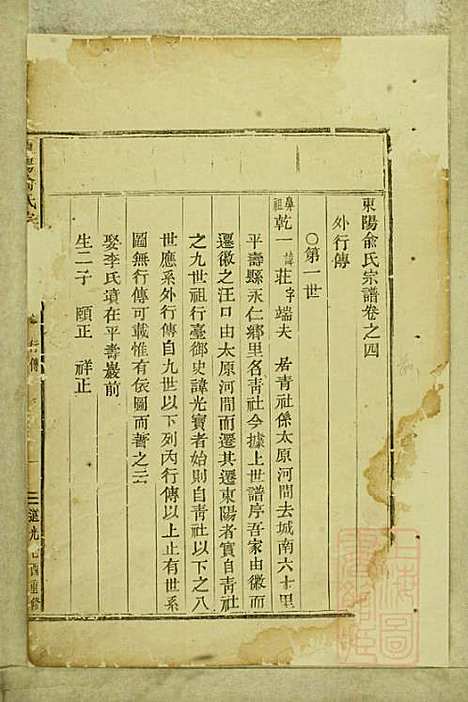 東陽俞氏宗譜卷之四
外行傳
○第一世
鼻祖乾一諱莊字端夫 居青社係太原河間去城南六十里
平壽縣永仁鄉里名青社今據上世譜序吾家由徽而
遷徽之汪口由太原河間而遷其遷東陽者實自青社
之九世祖行臺御史諱光寶者始則自青社以下之八
世應系外行傳自九世以下列內行傳以上止有世系
圖無行傳可載惟有依圖而著之云
娶李氏墳在平壽巖前
生二子 頤正 祥正
俞氏宗
行傳
一
道光 酉重修